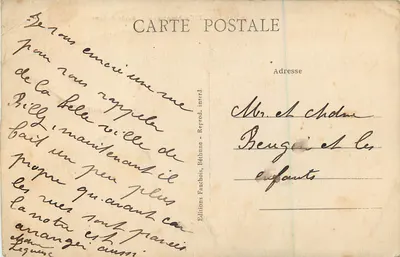 CARTE POSTALE
Je vous envoie une vue
pour vous rappeler
de la belle ville de
Billy, maintenant il
fait un peu plus
propre qu'avant car
les rues sont pavées
la notre est
arranger aussi
Editions Fauchois, Béthune - Reprod. interd.
Adresse
Mr. et Mdme
et les
enfants